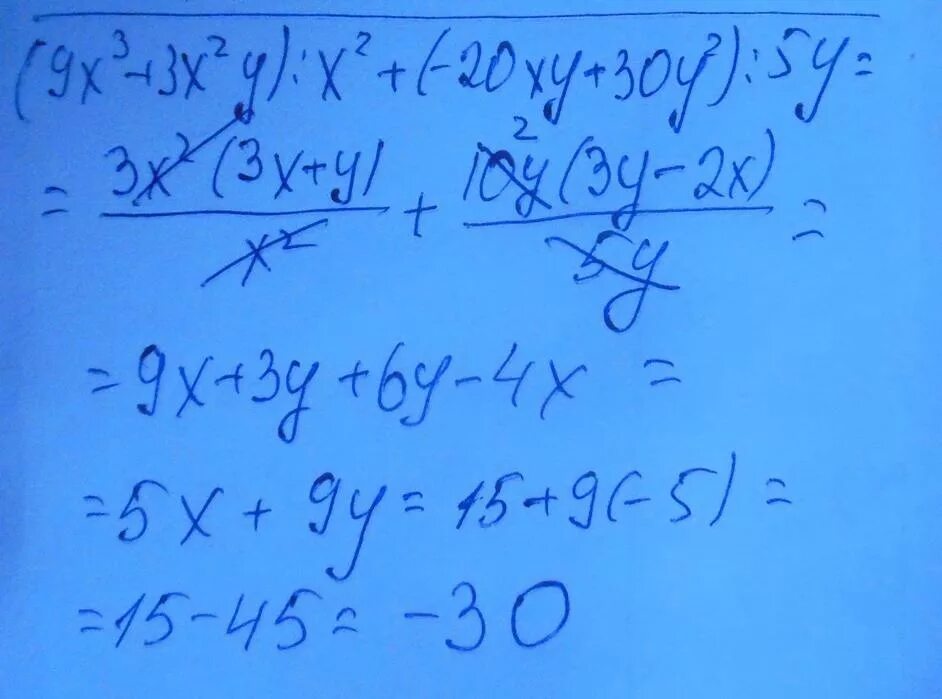 (9x³+3x²y):x²+(-20xy+30y²):5y=
= 3x²(3x+y)/x² + 2 10y(3y-2x)/5y =
=9x+3y+6y-4x =
=5x+9y=15+9(-5)=
=15-45=-30